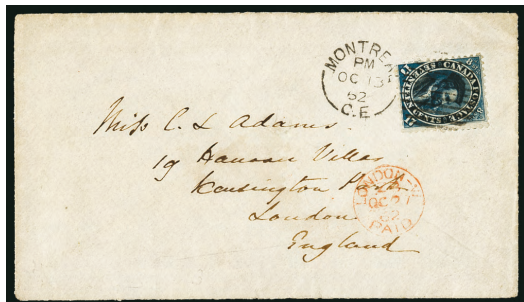 MONTREAL
PM
OC 13
62
C.E
CANADA POSTAGE
SEVENTEEN CENTS
Miss C. L Adams.
19 Hanover Villas
Kensington Park
London
England
LONDON
OC 27
62
PAID